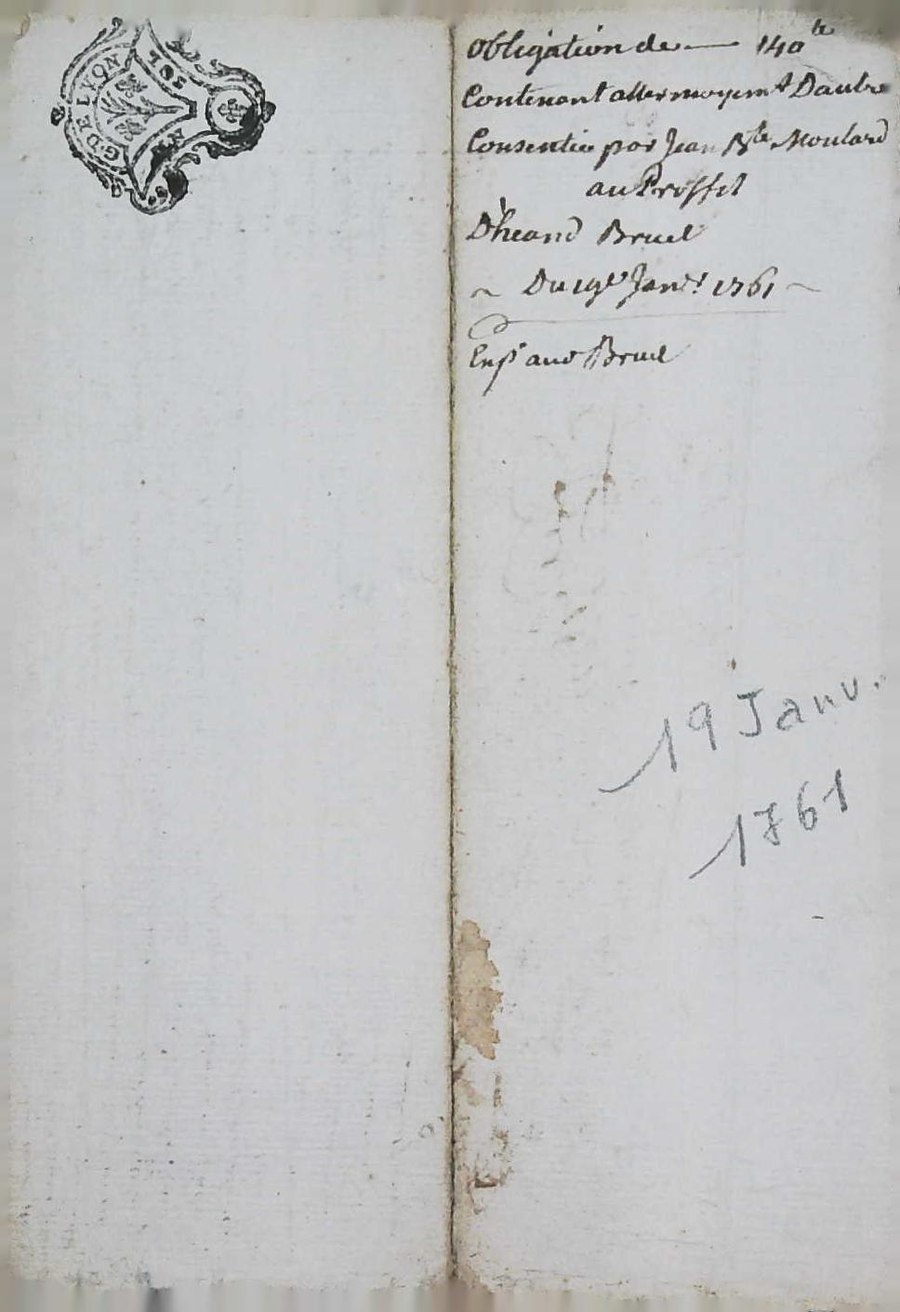 G. DE LYON
UN SOL
Obligation de — 140 lt
Contenant attermoyemt Dautre
Consentie par Jean Bte Moulard
au Proffit
D'heand Bruel
~ Du 19e Janer 1761 ~
Exp aud Bruel
19 Janv.
1761